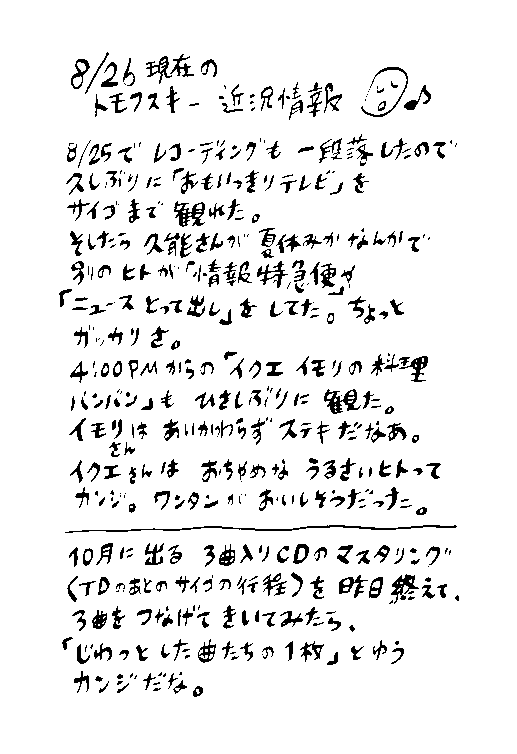 8/26 現在の
トモフスキー 近況情報
8/25で レコーディングも 一段落したので
久しぶりに「おもいっきりテレビ」を
サイゴまで 観れた。
そしたら 久能さんが 夏休みか なんかで
別の ヒトが「情報特急便」や
「ニュース とって出し」を してた。ちょっと
ガッカリさ。
4:00PMからの「イクエ イモリの 料理
バンバン」も ひさしぶりに 観た。
イモリさんは あいかわらず ステキだなあ。
イクエさんは おちゃめな うるさいヒトって
カンジ。ワンタンが おいしそうだった。
10月に 出る 3曲入りCDの マスタリング
(TDのあとの サイゴの行程)を 昨日 終えて、
3曲を つなげて きいてみたら、
「じわっとした曲たちの 1枚」とゆう
カンジだな。